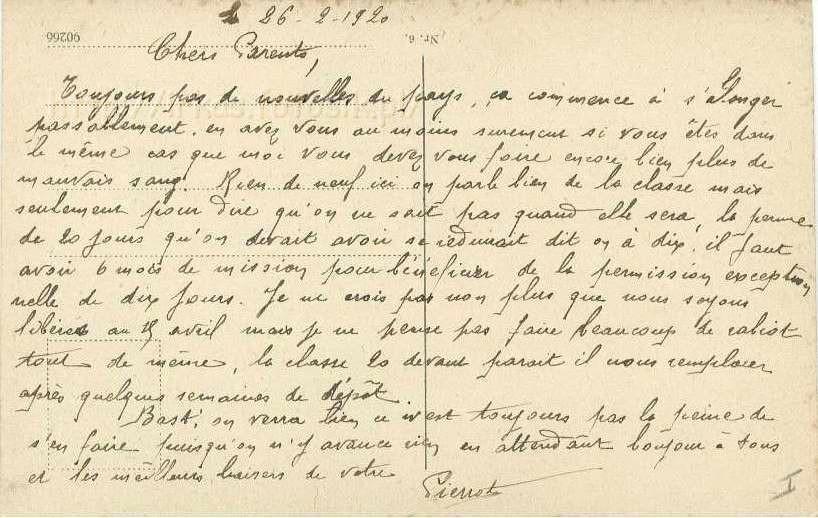 26-2-1920
90266
Nr. 6.
Chers Parents,
Toujours pas de nouvelles du pays, ça commence à s'allonger
passablement, en avez vous au moins surement si vous êtes dans
le même cas que moi vous devez vous faire encore bien plus de
mauvais sang. Rien de neuf ici on parle bien de la classe mais
seulement pour dire qu'on ne sait pas quand elle sera, la perme
de 20 jours qu'on devait avoir se réduirait dit on à dix, il faut
avoir 6 mois de mission pour bénéficier de la permission exception
nelle de dix jours. Je ne crois pas non plus que nous soyons
libérés au avril mais je ne pense pas faire beaucoup de rabiot
tout de même, la classe 20 devant parait il nous remplacer
après quelques semaines de dépôt.
Bast, on verra bien ce n'est toujours pas la peine de
s'en faire puisqu'on n'y avance rien en attendant bonjour à tous
et les meilleurs baisers de votre
Pierrot
I